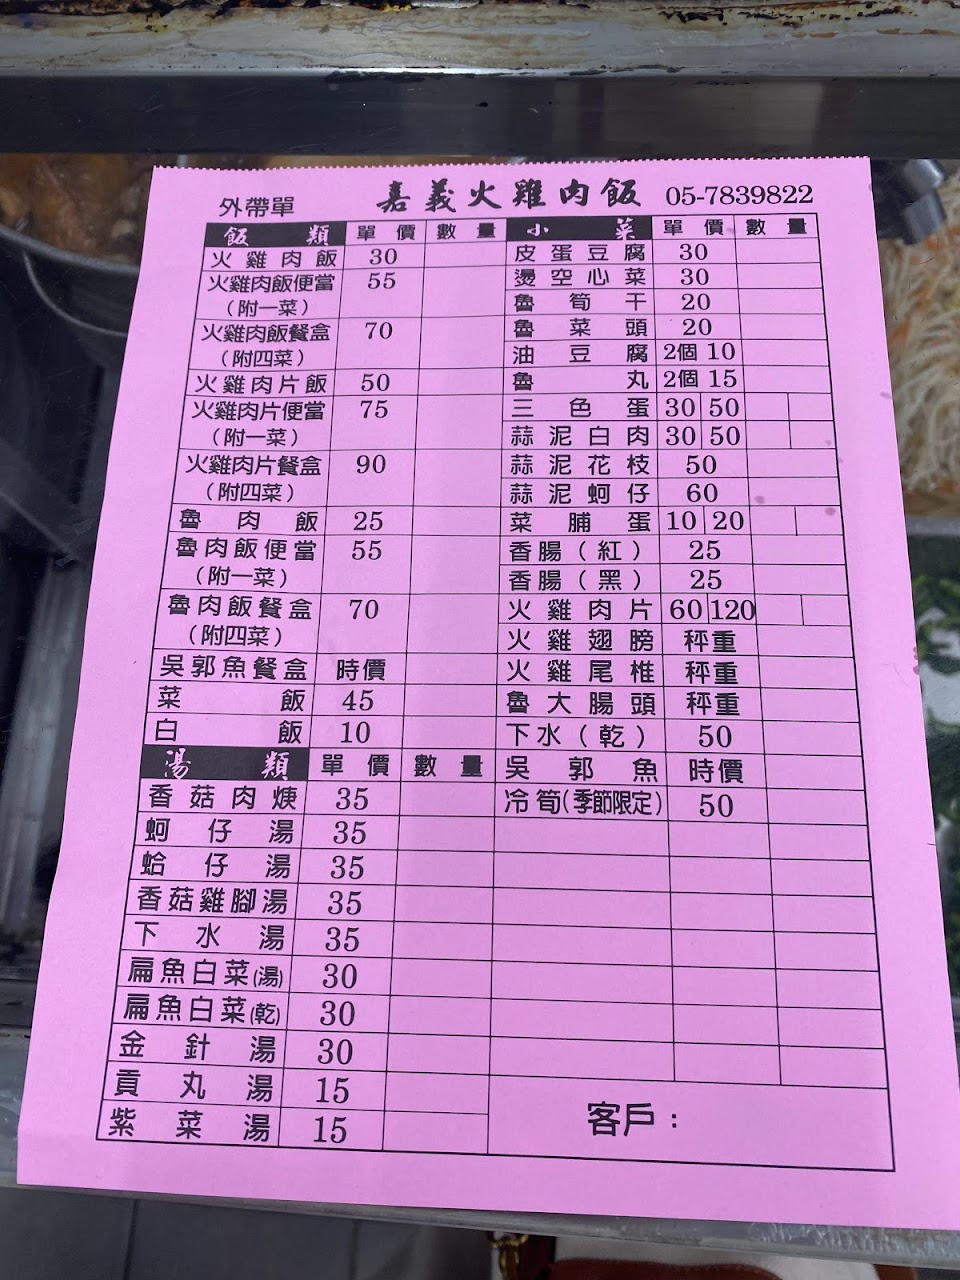 外帶單 嘉義火雞肉飯 05-7839822
飯類 單價 數量
火雞肉飯 30
火雞肉飯便當 55
(附一菜)
火雞肉飯餐盒 70
(附四菜)
火雞肉片飯 50
火雞肉片便當 75
(附一菜)
火雞肉片餐盒 90
(附四菜)
魯肉飯 25
魯肉飯便當 55
(附一菜)
魯肉飯餐盒 70
(附四菜)
吳郭魚餐盒 時價
菜飯 45
白飯 10
湯類 單價 數量
香菇肉焿 35
蚵仔湯 35
蛤仔湯 35
香菇雞腳湯 35
下水湯 35
扁魚白菜(湯) 30
扁魚白菜(乾) 30
金針湯 30
貢丸湯 15
紫菜湯 15
小菜 單價 數量
皮蛋豆腐 30
燙空心菜 30
魯筍干 20
魯菜頭 20
油豆腐 2個 10
魯丸 2個 15
三色蛋 30 50
蒜泥白肉 30 50
蒜泥花枝 50
蒜泥蚵仔 60
菜脯蛋 10 20
香腸(紅) 25
香腸(黑) 25
火雞肉片 60 120
火雞翅膀 秤重
火雞尾椎 秤重
魯大腸頭 秤重
下水(乾) 50
吳郭魚 時價
冷筍(季節限定) 50
客戶：